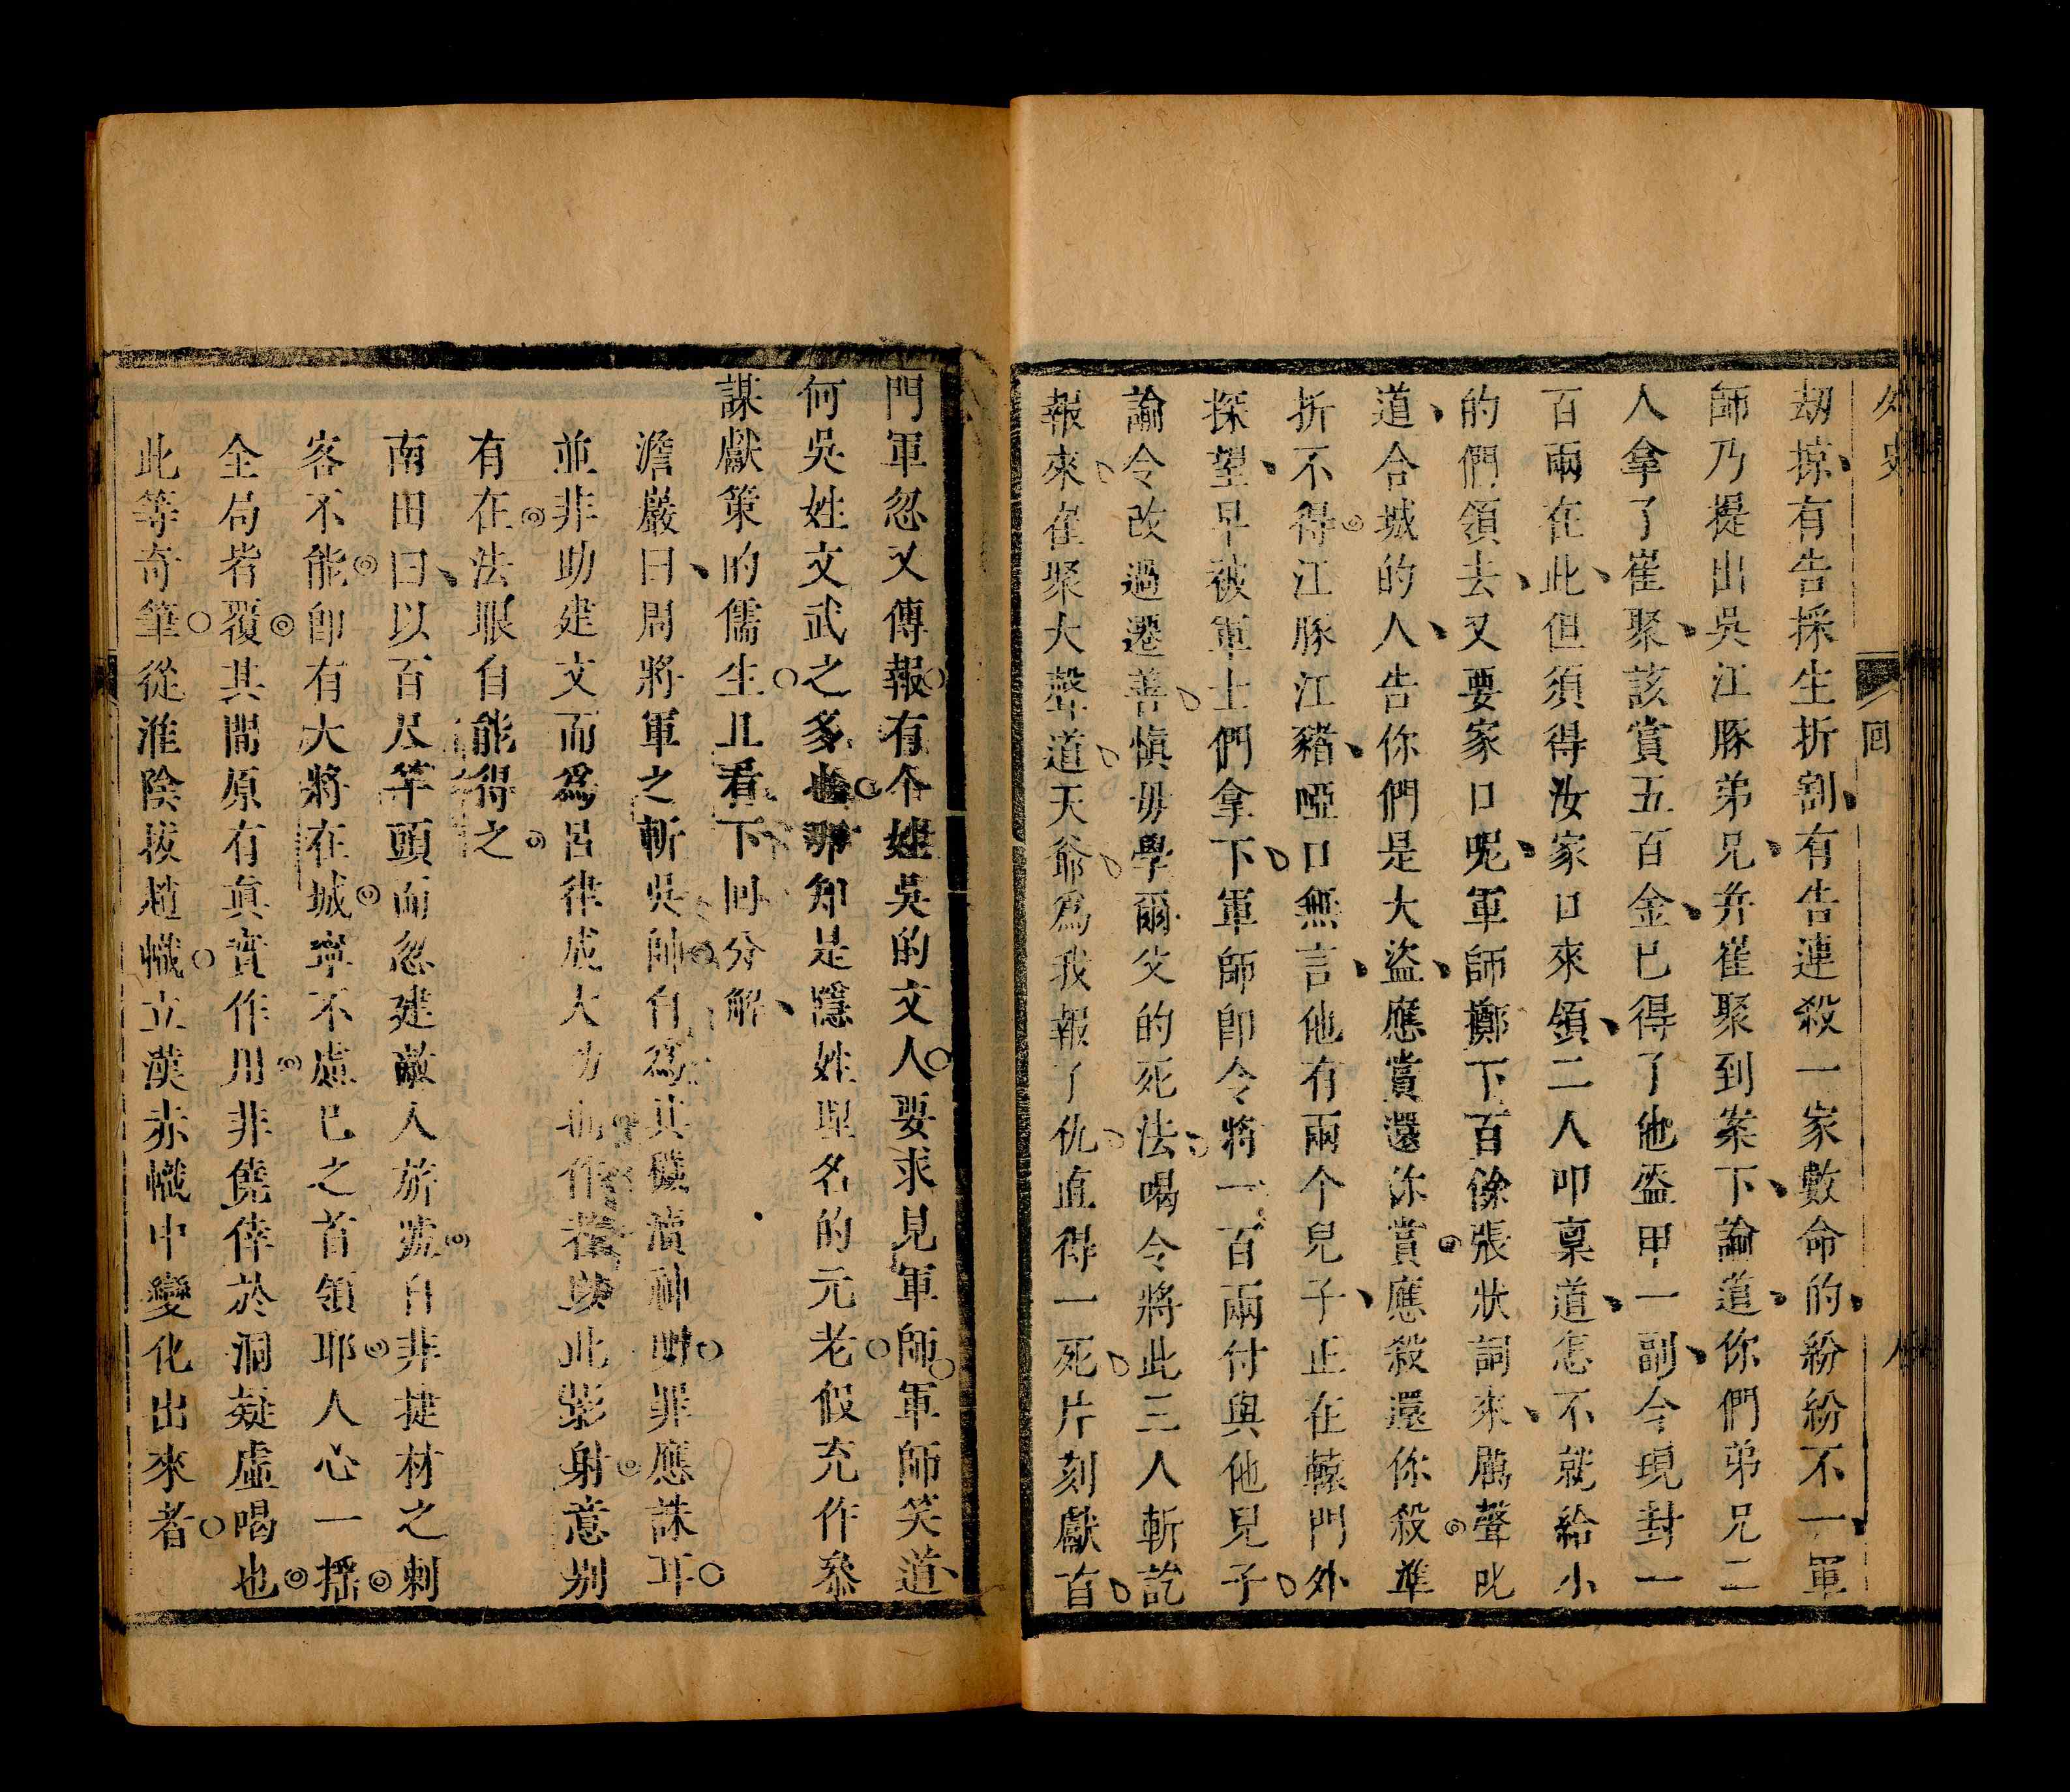 外史
回
劫掠有告採生折割有告連殺一家數命的紛紛不一軍
師乃提出吳江豚弟兄并崔聚到案下諭道你們弟兄二
人拿了崔聚該賞五百金已得了他盔甲一副今現封一
百兩在此但須得汝家口來領二人叩稟道怎不就給小
的們領去又要家口呢軍師擲下百餘張狀詞來厲聲叱
道合城的人告你們是大盜應賞還你賞應殺還你殺準
折不得江豚江豬啞口無言他有兩个兒子正在轅門外
探望早被軍士們拿下軍師即令將一百兩付與他兒子
諭令改過遷善慎毋學爾父的死法喝令將此三人斬訖
報來崔聚大聲道天爺為我報了仇直得一死片刻獻首
門軍忽又傳報有个姓吳的文人要求見軍師軍師笑道
何吳姓文武之多也那知是隱姓埋名的元老假充作參
謀獻策的儒生且看下回分解
澹巖曰周將軍之斬吳帥自為其穢瀆神明罪應誅耳
並非助建文而為呂律成大功也作者蓋此影射意別
有在法眼自能得之
南田曰以百尺竿頭而忽建敵人旂號自非捷材之刺
客不能卽有大將在城寧不慮已之首領耶人心一搖
全局皆覆其間原有真實作用非僥倖於洞疑虛喝也
此等奇筆從淮陰拔趙幟立漢赤幟中變化出來者